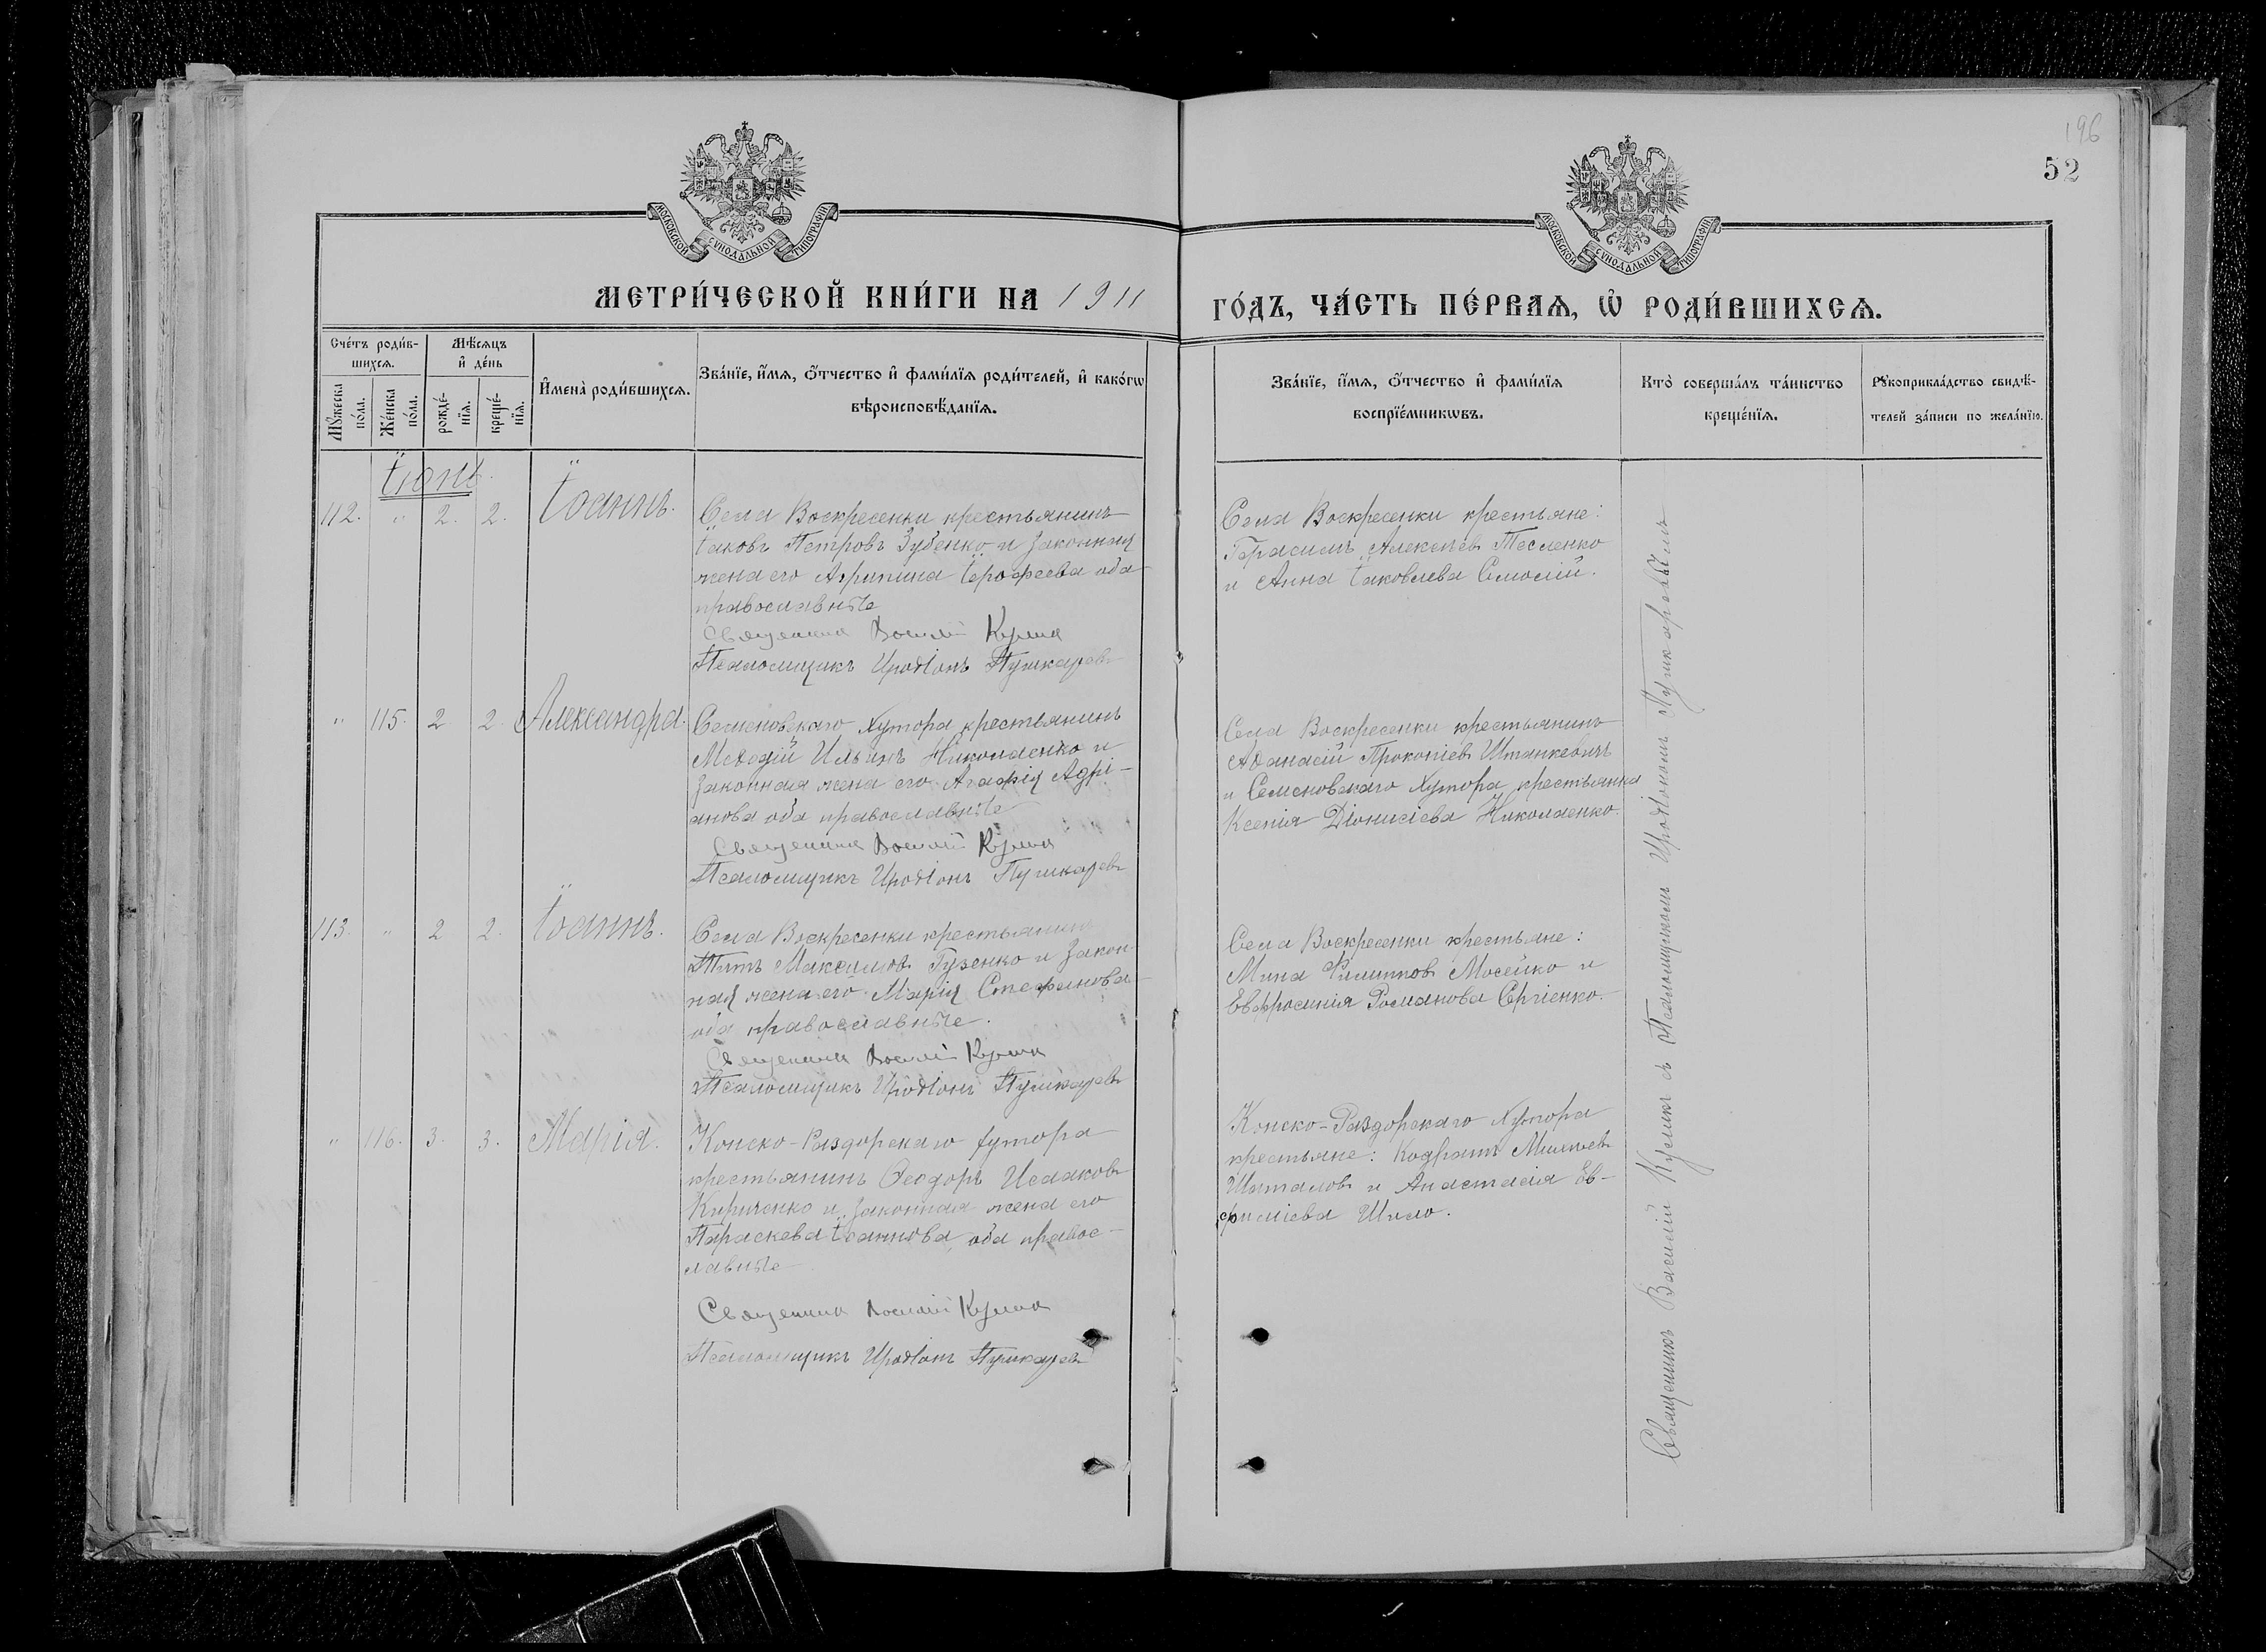 196
52
МОСКОВСКОЙ СѴНОДАЛЬНОЙ ТИПОГРАФІИ
МОСКОВСКОЙ СѴНОДАЛЬНОЙ ТИПОГРАФІИ
МЕТРИ́ЧЕСКОЙ КНИ́ГИ НА 1911
ГО́ДЪ, ЧА́СТЬ ПЕ́РВАѦ, Ѡ҆ РОДИ́ВШИХСѦ.
Сче́тъ роди́в-
шихся.
Мꙋ́жеска
по́ла.
Же́нска
по́ла.
Мѣ́сяцъ
и҆ де́нь
рожде́-
нїя.
креще́-
нїя.
И҆мена̀ роди́вшихся.
Зва́нїе, и҆́мя, ѻ҆́тчество и҆ фами́лїя роди́телей, и҆ како́гѡ
вѣроисповѣ́данїя.
Зва́нїе, и҆́мя, ѻ҆́тчество и҆ фами́лїя
воспрїе́мникѡвъ.
Кто̀ соверша́лъ та́инство
креще́нїя.
Рꙋкоприкла́дство свидѣ́-
телей за́писи по жела́нїю.
Іюнь.
112. " 2. 2. Іоаннъ.
Села Воскресенки крестьянинъ
Іаковъ Петровъ Зубенко и законная
жена его Агрипина Іерофеева оба
православные
Священникъ Василій
Псаломщикъ Иродіонъ Пушкаревъ
Села Воскресенки крестьяне:
Герасимъ Алексѣевъ Тесленко
и Анна Іаковлева
" 115. 2 2 Александра.
Семеновскаго Хутора крестьянинъ
Меѳодій Ильинъ Николаенко и
законная жена его Агафія Адрі-
анова оба православные
Священникъ Василій
Псаломщикъ Иродіонъ Пушкаревъ
Села Воскресенки крестьянинъ
Аѳанасій Прокопіевъ Штанкевичъ
и Семеновскаго Хутора крестьянка
Ксенія Діонисіева Николаенко.
113. " 2 2. Іоаннъ.
Села Воскресенки крестьянинъ
Титъ Максимовъ Гузенко и закон-
ная жена его Марія Стефанова
оба православные.
Священникъ Василій
Псаломщикъ Иродіонъ Пушкаревъ
Села Воскресенки крестьяне:
Мина Филипповъ Мосейко и
Евфросинія Романова Сргіенко.
" 116. 3. 3. Марія.
Конско-Раздорскаго хутора
крестьянинъ Ѳеодоръ Исааковъ
Кириченко и законная жена его
Параскева Іоаннова, оба правос-
лавные
Священникъ Василій
Псаломщикъ Иродіонъ Пушкаревъ
Конско-Раздорскаго Хутора
крестьяне: Кодратъ
Шаталовъ и Анастасія Ев-
фиміева Шило.
Священникъ Василій съ Псаломщикомъ Иродіономъ Пушкаревымъ